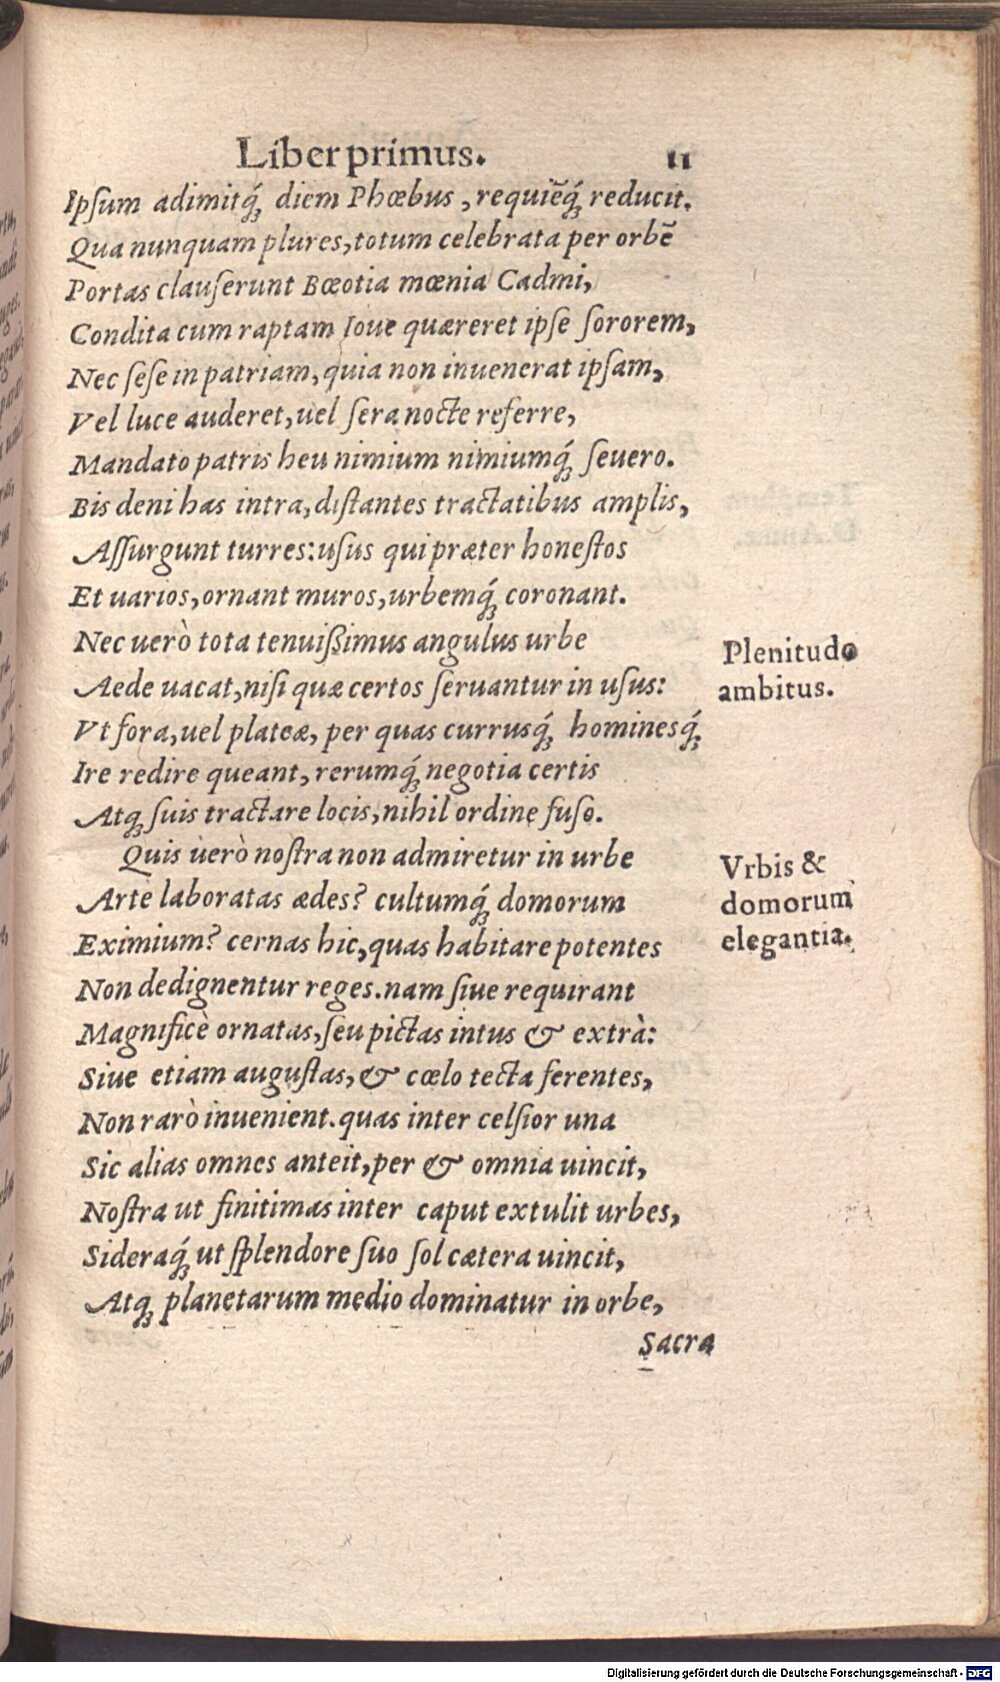 Liber primus. 11
Ipſum adimitq́; diem Phœbus, requiẽq́; reducit.
Qua nunquam plures, totum celebrata per orbẽ
Portas clauſerunt Bœotia mœnia Cadmi,
Condita cum raptam Ioue quæreret ipſe ſororem,
Nec ſeſe in patriam, quia non inuenerat ipſam,
Vel luce auderet, uel ſera nocte referre,
Mandato patris heu nimium nimiumq́; ſeuero.
Bis deni has intra, diſtantes tractatibus amplis,
Aſſurgunt turres: uſus qui præter honeſtos
Et uarios, ornant muros, urbemq́; coronant.
Nec uerò tota tenuißimus angulus urbe
Aede uacat, niſi quæ certos ſeruantur in uſus:
Vt fora, uel plateæ, per quas currusq́; hominesq́;
Ire redire queant, rerumq́; negotia certis
Atq; ſuis tractare locis, nihil ordine fuſo.
Quis uerò noſtra non admiretur in urbe
Arte laboratas ædes? cultumq́; domorum
Eximium? cernas hic, quas habitare potentes
Non dedignentur reges. nam ſiue requirant
Magnificè ornatas, ſeu pictas intus & extrà:
Siue etiam auguſtas, & cœlo tecta ferentes,
Non rarò inuenient. quas inter celſior una
Sic alias omnes anteit, per & omnia uincit,
Noſtra ut finitimas inter caput extulit urbes,
Sideraq́; ut ſplendore ſuo ſol cætera uincit,
Atq; planetarum medio dominatur in orbe,
Sacra
Plenitudo
ambitus.
Vrbis &
domorum
elegantia.
Digitalisierung gefördert durch die Deutsche Forschungsgemeinschaft - DFG